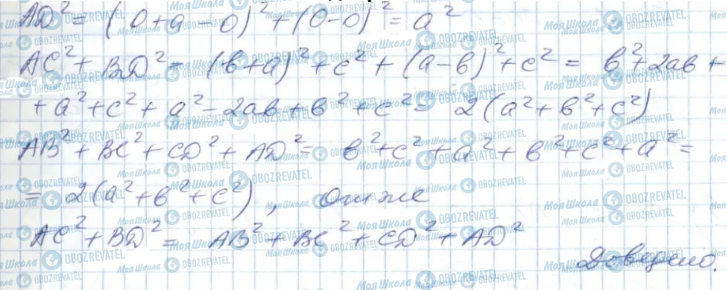 AD² = (0+a-0)² + (0-0)² = a²
AC² + BD² = (b+a)² + c² + (a-b)² + c² = b² + 2ab +
+ a² + c² + a² - 2ab + b² + c² = 2(a² + b² + c²)
AB² + BC² + CD² + AD² = b² + c² + a² + b² + c² + a² =
= 2(a² + b² + c²), отже
AC² + BD² = AB² + BC² + CD² + AD²
Доведено.